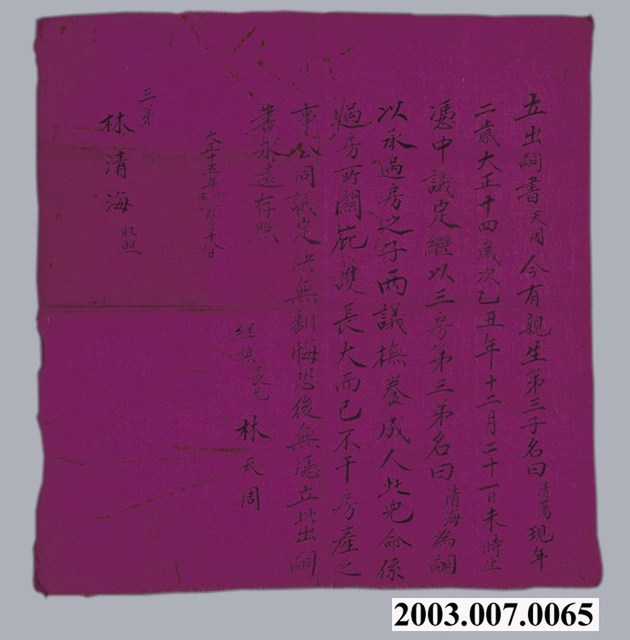 立出嗣書天周今有親生第三子名曰清萬現年
二歲大正十四歲次乙丑年十二月二十一日未時生
憑中議定繼以三房第三弟名曰清海為嗣
以承過房之子兩議撫養成人此兒命係
過房所關庇護長大而已不干房產之
事公同議定決無翻悔恐後無憑立此出嗣
書永遠存照
大正十五年 月 日
三弟
林清海收照
長兄林天周
2003.007.0065